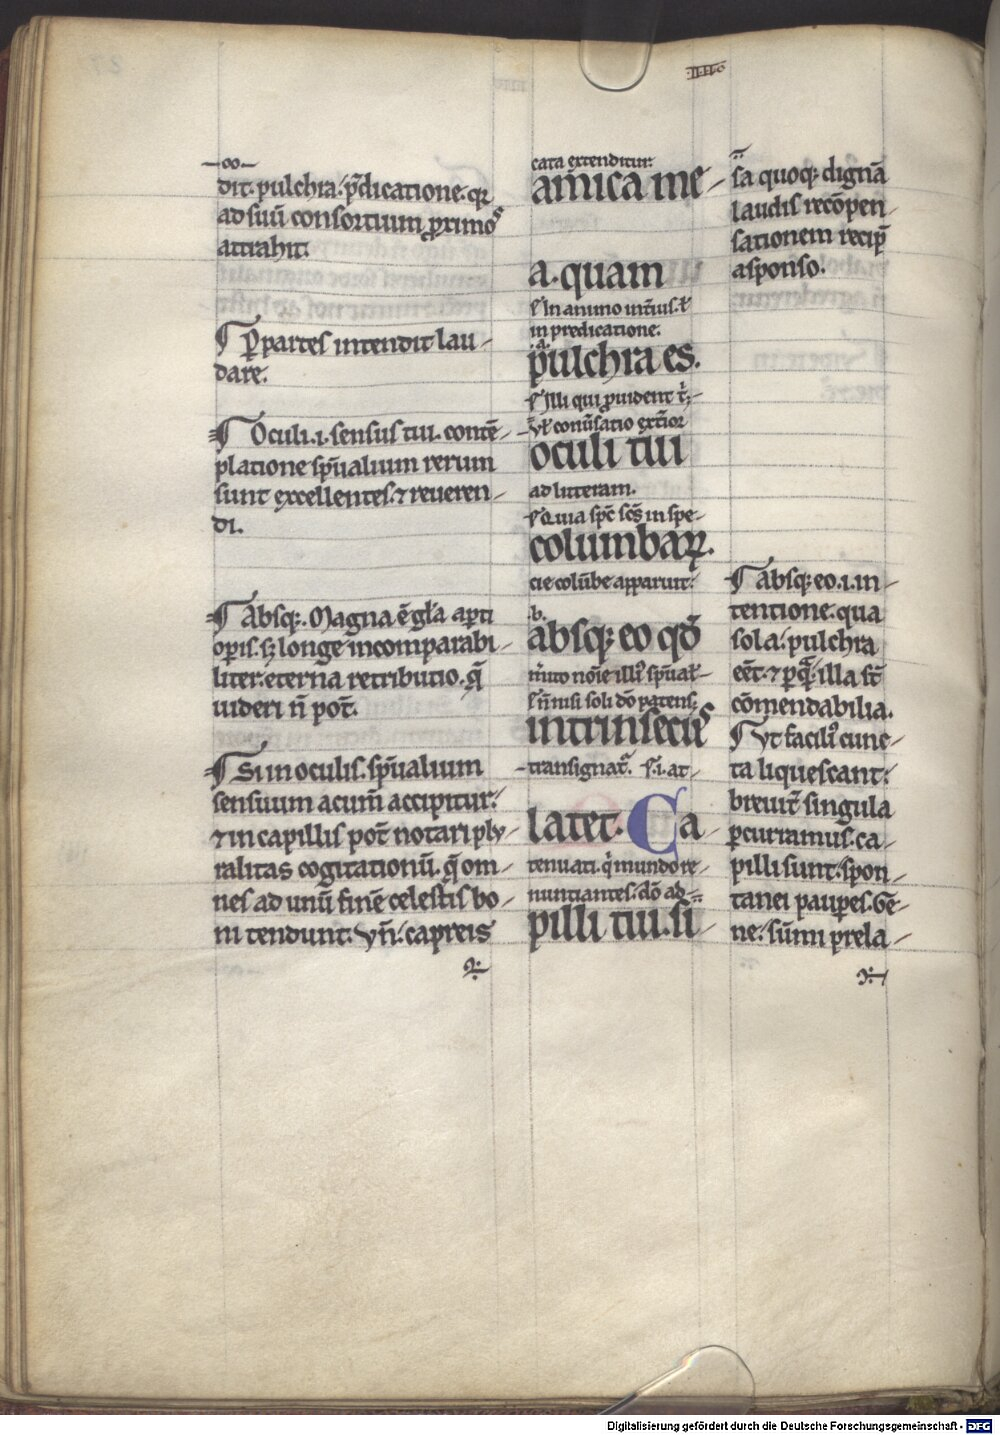 ·IIII·
dit. pulchra. p̄dicatione. qr
ad suū consortium proximos
attrahit.
¶ Per partes intendit lau-
dare.
¶ Oculi .i. sensus tui. contē-
platione spūalium rerum
sunt excellentes. ⁊ reueren-
di.
¶ Absq;. Magna ē gl̄a aperti
operis. sꝫ longe incomparabi-
liter. eterna retributio. q̄
uideri n̄ pot̄.
¶ Si in oculis. sp̄ualium
sensuum acum̄ accipitur.
⁊ in capillis pot̄ notari plu-
ralitas cogitationū. q̄ om-
nes ad unū finē celestis bo-
ni tendunt. Vn̄. capreis
cata extenditur.
amica me-
a. quam
s̄ in animo int̄ius. ł
in predicatione.
.a.
pulchra es.
s̄ Illi qui p̱uident t̄.
ł conūsatio ext̄ior
oculi tui
ad litteram.
s̄ Quia sp̄c sc̄s in spe-
columbaꝝ.
cie colūbe apparuit.
.b.
absq; eo qđ
s̄ n̄ nisi soli dō patens.
intrinsecus
transignat̄. s̄ .i. at-
latet. Ca
tenuati. q̄ mundo re-
nuntiantes. dō ad-
pilli tui. si-
sa quoq; dignā
laudis recōpen-
sationem recip̄
a sponso.
¶ Absq; eo .i. in-
tentione. qua
sola. pulchra
eēt. ⁊ p̱ q̄ illa st̄
cōmendabilia.
¶ Vt facili⁹ cunc-
ta liquescant.
breuit̄ singula
p̱curramus. ca-
pilli sunt. spon-
tanei paup̱es. Ge-
ne. sūmi prela-
Digitalisierung gefördert durch die Deutsche Forschungsgemeinschaft - DFG